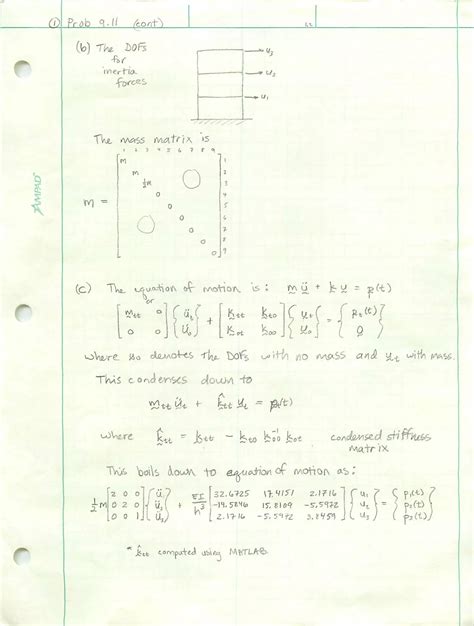 ① Prob 9.11 (cont)
(b) The DOFs
for
inertia
forces
u₃
u₂
u₁
The mass matrix is
1 2 3 4 5 6 7 8 9
m = [m m ½m 0 0 0 0 0 0]
1
2
3
4
5
6
7
8
9
AMPAD
(c) The equation of motion is : m ü + k u = p(t)
or
[m_tt 0; 0 0]{ü_t; ü_0} + [k_tt k_t0; k_0t k_00]{u_t; u_0} = {p_t(t); 0}
where u₀ denotes the DOFs with no mass and u_t with mass.
This condenses down to
m_tt ü_t + k̂_tt u_t = p_t(t)
where k̂_tt = k_tt - k_t0 k_00⁻¹ k_0t condensed stiffness
matrix
This boils down to equation of motion as:
½m[2 0 0; 0 2 0; 0 0 1]{ü₁; ü₂; ü₃} + EI/h³[32.6725 17.4151 2.1716; -14.5846 15.8109 -5.5972; 2.1716 -5.5972 3.8459]{u₁; u₂; u₃} = {p₁(t); p₂(t); p₃(t)}
* k̂_tt computed using MATLAB